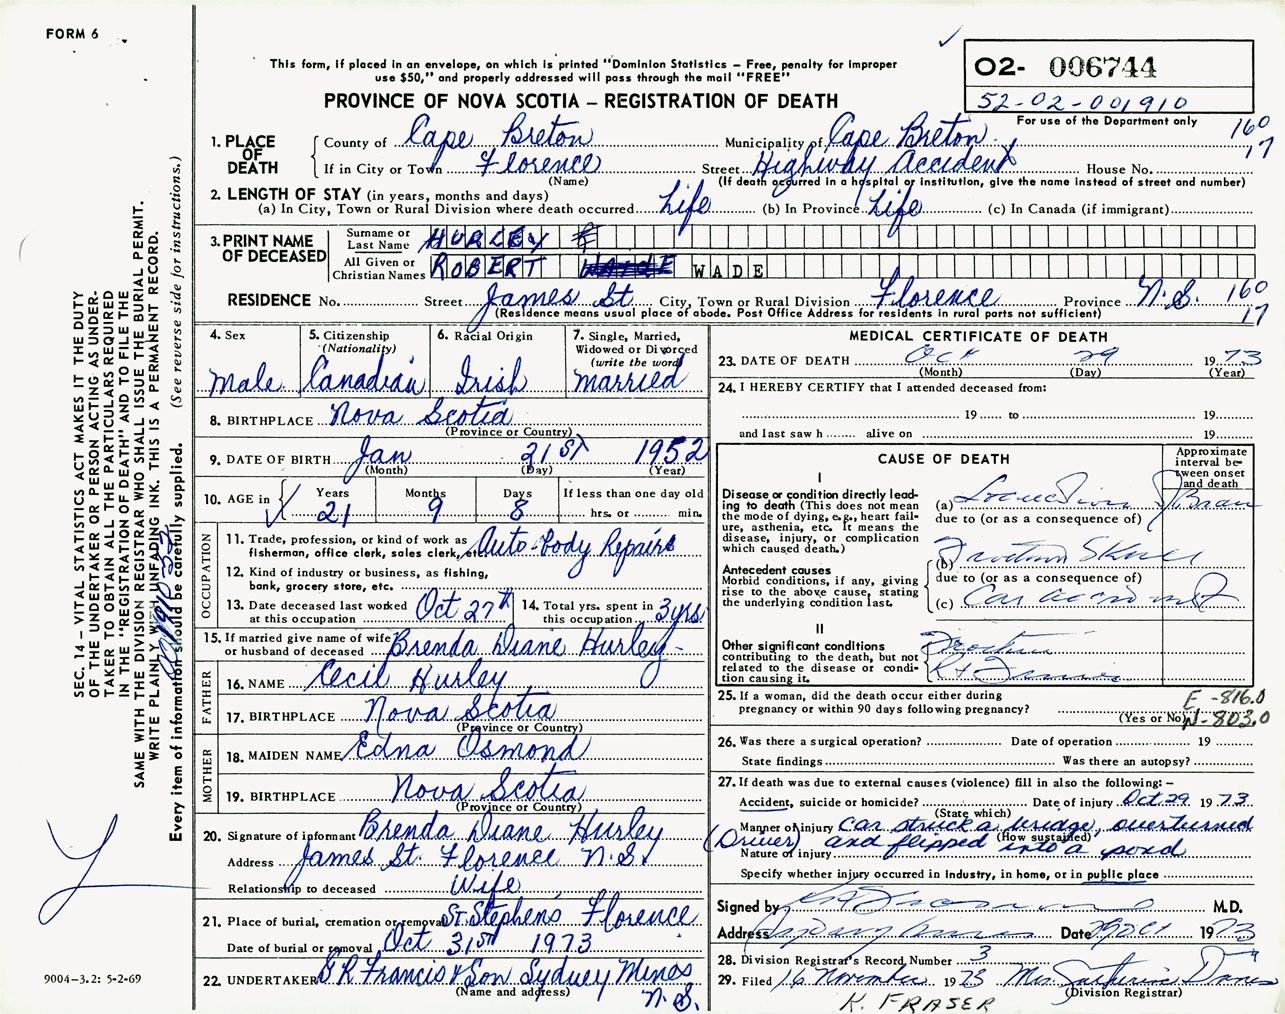 FORM 6
This form, if placed in an envelope, on which is printed "Dominion Statistics – Free, penalty for improper
use $50," and properly addressed will pass through the mail "FREE"
PROVINCE OF NOVA SCOTIA – REGISTRATION OF DEATH
O2- 006744
52-02-001910
For use of the Department only
160
17
1. PLACE OF DEATH
County of Cape Breton Municipality of Cape Breton
If in City or Town Florence Street Highway Accident House No.
(Name) (If death occurred in a hospital or institution, give the name instead of street and number)
2. LENGTH OF STAY (in years, months and days)
(a) In City, Town or Rural Division where death occurred Life (b) In Province Life (c) In Canada (if immigrant)
3. PRINT NAME OF DECEASED
Surname or Last Name HURLEY
All Given or Christian Names ROBERT WADE
RESIDENCE No. Street James St City, Town or Rural Division Florence Province N.S. 160
17
(Residence means usual place of abode. Post Office Address for residents in rural parts not sufficient)
4. Sex
Male
5. Citizenship
(Nationality)
Canadian
6. Racial Origin
Irish
7. Single, Married,
Widowed or Divorced
(write the word)
married
8. BIRTHPLACE Nova Scotia
(Province or Country)
9. DATE OF BIRTH Jan 21st 1952
(Month) (Day) (Year)
10. AGE in Years Months Days If less than one day old
21 9 8 hrs. or min.
OCCUPATION
11. Trade, profession, or kind of work as
fisherman, office clerk, sales clerk, etc. Auto-body Repairs
12. Kind of industry or business, as fishing,
bank, grocery store, etc.
13. Date deceased last worked
at this occupation Oct 27th
14. Total yrs. spent in
this occupation 3 yrs.
15. If married give name of wife
or husband of deceased Brenda Diane Hurley
FATHER
16. NAME Cecil Hurley
17. BIRTHPLACE Nova Scotia
(Province or Country)
MOTHER
18. MAIDEN NAME Edna Osmond
19. BIRTHPLACE Nova Scotia
(Province or Country)
20. Signature of informant Brenda Diane Hurley
Address James St. Florence N.S.
Relationship to deceased Wife
21. Place of burial, cremation or removal St. Stephens Florence
Date of burial or removal Oct 31st 1973
22. UNDERTAKER Francis & Son Sydney Mines
(Name and address) N.S.
MEDICAL CERTIFICATE OF DEATH
23. DATE OF DEATH Oct 29 1973
(Month) (Day) (Year)
24. I HEREBY CERTIFY that I attended deceased from:
19 to 19
and last saw h alive on 19
CAUSE OF DEATH
Approximate
interval be-
tween onset
and death
I
Disease or condition directly lead-
ing to death (This does not mean
the mode of dying, e.g., heart fail-
ure, asthenia, etc. It means the
disease, injury, or complication
which caused death.)
(a) Laceration Brain
due to (or as a consequence of)
Antecedent causes
Morbid conditions, if any, giving
rise to the above cause, stating
the underlying condition last.
(b) Fracture Skull
due to (or as a consequence of)
(c) Car accident
II
Other significant conditions
contributing to the death, but not
related to the disease or condi-
tion causing it.
Fracture
Rt Femur
25. If a woman, did the death occur either during
pregnancy or within 90 days following pregnancy?
(Yes or No)
E -816.0
N-803.0
26. Was there a surgical operation? Date of operation 19
State findings Was there an autopsy?
27. If death was due to external causes (violence) fill in also the following: –
Accident, suicide or homicide? Date of injury Oct 29 1973
(State which)
Manner of injury car struck a bridge, overturned
(How sustained)
(Driver) and flipped into a pond
Nature of injury
Specify whether injury occurred in industry, in home, or in public place
Signed by M.D.
Address Sydney Mines Date 29 Oct 1973
28. Division Registrar's Record Number 3
29. Filed 16 November 1973 Mrs.
(Division Registrar)
K. FRASER
SEC. 14 – VITAL STATISTICS ACT MAKES IT THE DUTY
OF THE UNDERTAKER OR PERSON ACTING AS UNDER-
TAKER TO OBTAIN ALL THE PARTICULARS REQUIRED
IN THE "REGISTRATION OF DEATH" AND TO FILE THE
SAME WITH THE DIVISION REGISTRAR WHO SHALL ISSUE THE BURIAL PERMIT.
WRITE PLAINLY WITH UNFADING INK. THIS IS A PERMANENT RECORD.
Every item of information should be carefully supplied. (See reverse side for instructions.)
9004–3.2: 5-2-69